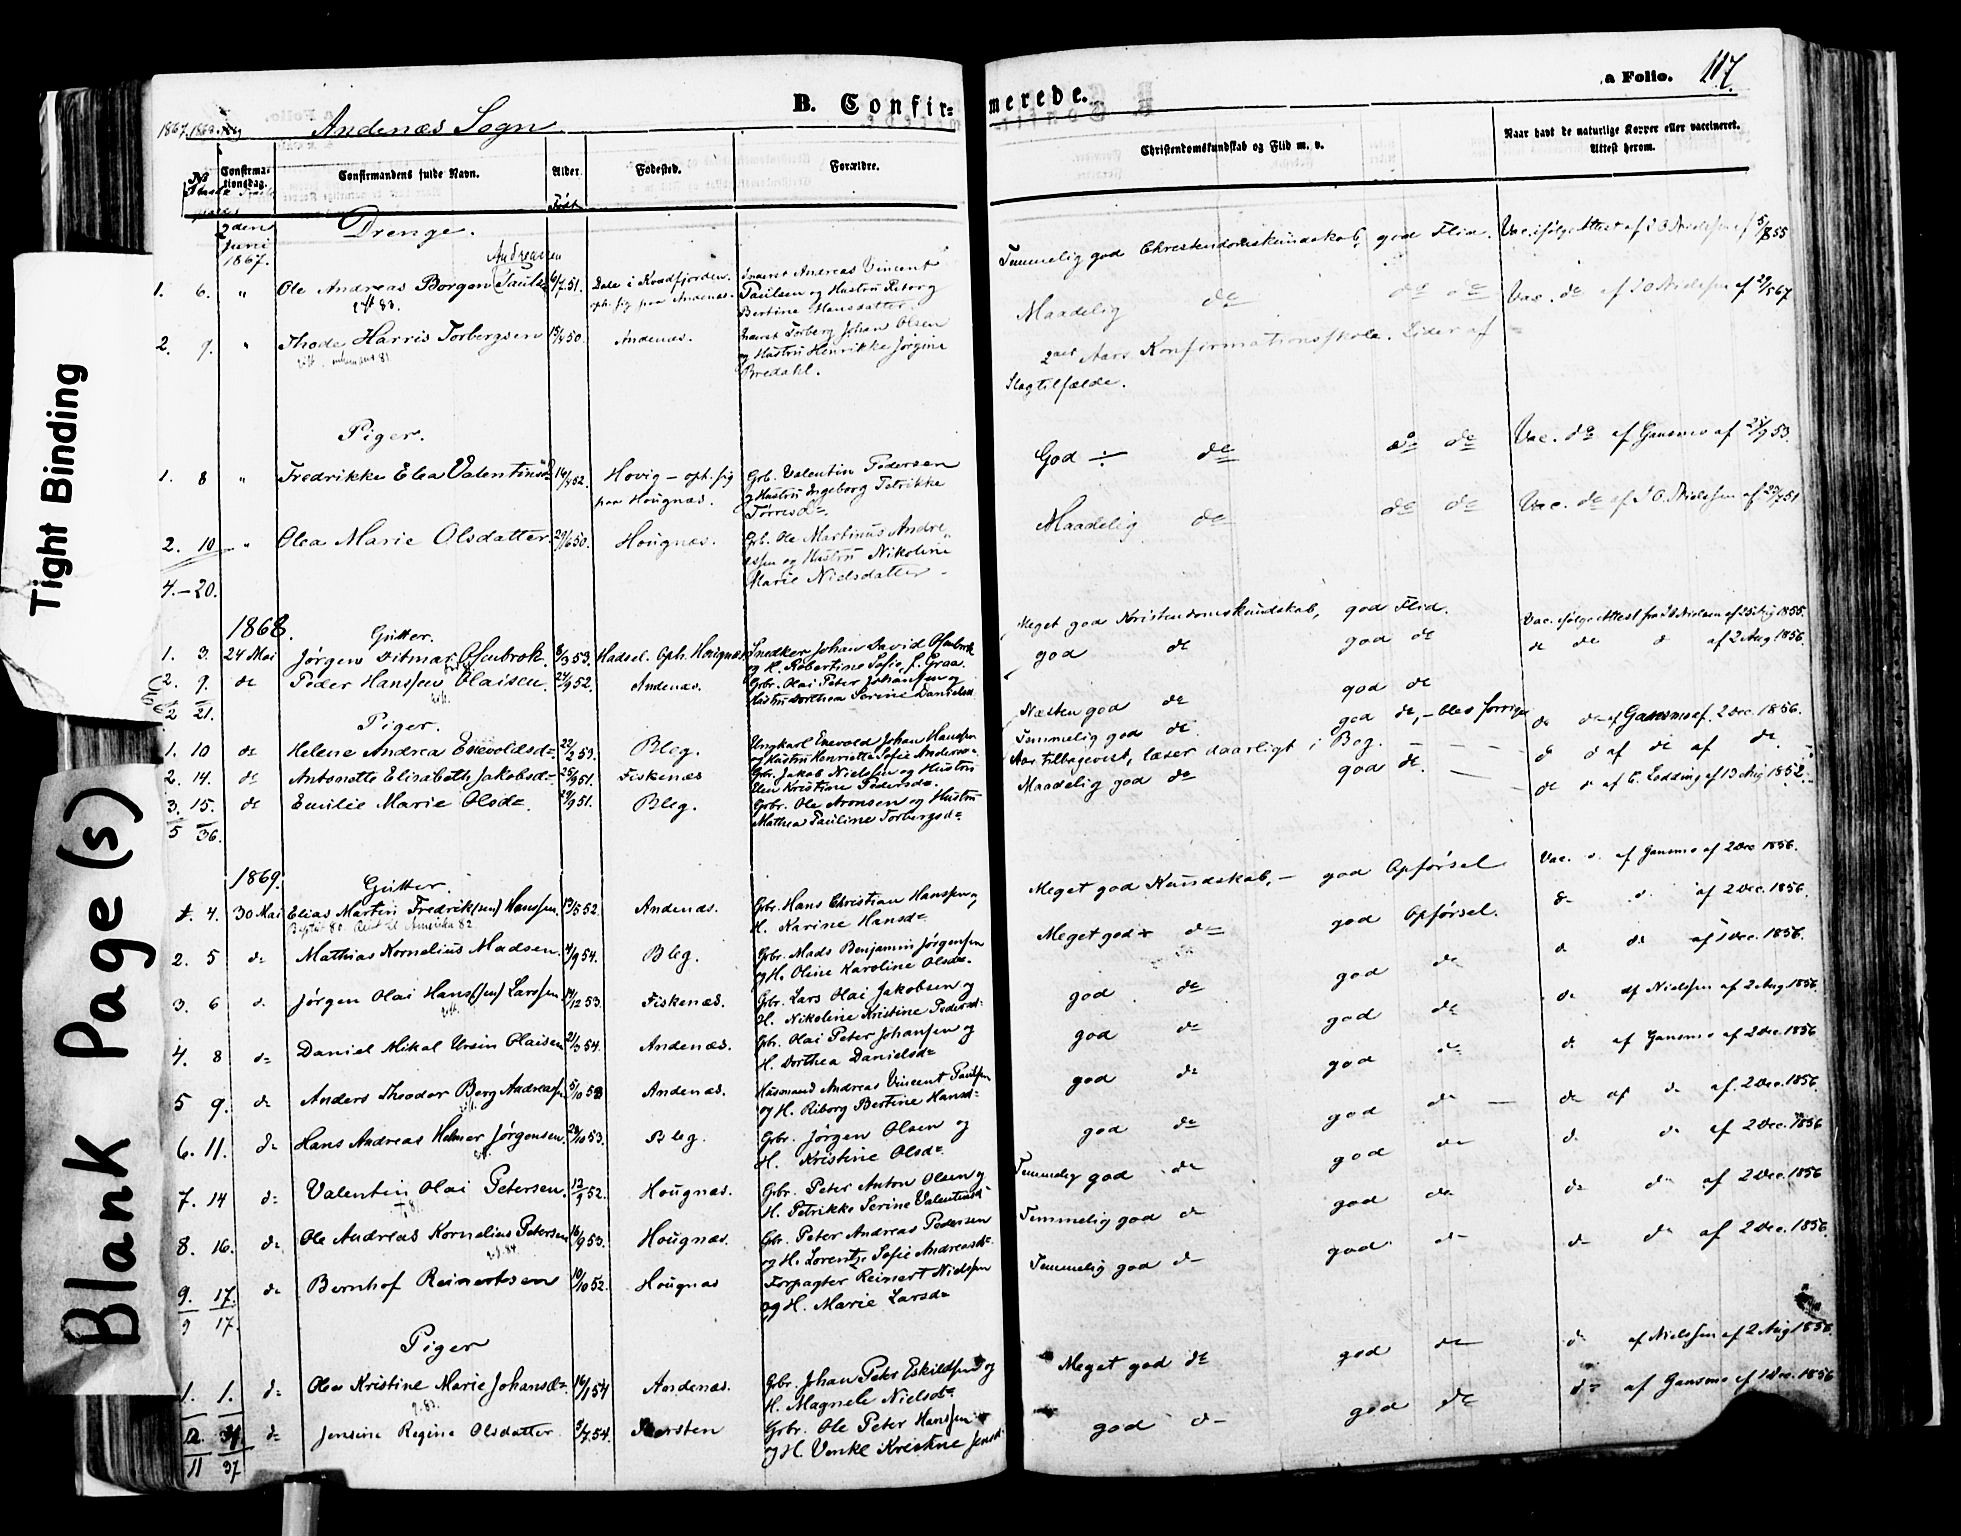 a Folio. 117.
B. Confir= merede.
1867. 1868.
Andenæs Sogn
No
Confirma-
tionsdag.
Confirmandens fulde Navn.
Alder
Født
Fødested.
Forældre.
Christendomskundskab og Flid m. v.
Naar havt de naturlige Kopper eller vaccineret.
Attest herom.
2den
Juni
1867.
Drenge.
Andreassen
1. 6. " Ole Andreas Borgen 6/7 51. i Kvædfjorden. Andreas Vincent
oph. sig paa Andenæs. Paulsen og Hustru Riborg
Bertine Hansdatter.
Temmelig god Christendomskundskab, god Flid. Vac. ifølge Attest af 5/8 55
2. 9. " Thode Harris Torbergsen 50. Andenæs. Torberg Johan Olsen
og Hustru Henrikke Jørgine
Bredahl.
Maadelig do do do Vac. do af
2det Aars Konfirmationsskole. Lider af
Slagtilfælde.
Piger.
1. 8 " Fredrikke Elea Valentinsd 52. Hovig – oph. sig Gbr. Valentin Pedersen
paa Hougnæs. og Hustru Ingeborg Petrikke
God ÷ do do do Vac. do af Gansmo af 53.
2. 10 " Olea Marie Olsdatter 29/6 50. Hougnæs. Grb. Ole Martinus Andre
assen og Hustru Nikoline
Marie Nielsdatter
Maadelig do do do Vac. do af Nielssen af 51
4. – 20.
1868.
Gutter.
1. 3. 24 Mai Jørgen Ditmar Ofenbrok. 8/3 53. Hadsel. Oph. Hougnæs Snedker Johan David Ofenbrok
og H. Robertine Sofie f. Graa.
Meget god Kristendomskundskab, god Flid. Vac. ifølge Attest fra Nielsen af 25 Aug 1855.
2. 9. do Peder Hanssen Olaisen. 52. Andenæs. Gbr. Olai Peter Johanssen og
Hustru Dorthea Serine Danielsd
god do god do do do af 2 Aug 1856.
2 21.
Piger.
1. 10 do Helene Andrea Enevoldsd 53. Bleg. Ungkarl Enevold Johan Hanssen
og Hustru Henriette Sofie
Næsten god do god do do do af Gansmo af 2 Dec. 1856.
2. 14. do Antonette Elisabeth Jakobsd 25/9 51. Fiskenæs Gbr. Jakob Nielssen og Hustru
Elen Kristine Pedersd.
Temmelig god do god do, – blev forrige
Aar tilbagevist, læser daarligt i Bog. d d af do af do
3. 15. do Emilie Marie Olsd. 51. Bleg. Grbr. Ole Aronsen og Hustru
Mathea Pauline Torbergsd
Maadelig god do god do. do d af C. Lodding af 13 Aug 1852.
5 36.
1869.
Gutter.
1. 4. 30 Mai Elias Martin Fredrik(sen) Hanssen. 13/5 52. Andenæs. Gbr. Hans Christian Hanssen og
til Amerika 82. H. Karine Hansd
Meget god Kundskab, – god Opførsel Vac. af Gansmo af 2 Dec 1856.
2. 5 do Mathias Kornelius Madsen. 4/9 54. Bleg. Gbr. Mads Benjamin Jørgensen
og H. Oline Karoline Olsd.
Meget god do god Opførsel. do af 2 Dec. 1856.
3. 6 d. Jørgen Olai Hans(sen) Larssen. 12 53. Fiskenæs. Gbr. Lars Olai Jakobsen og
H. Nikoline Kristine Pedersd
god do god do d do af 1 Dec. 1856.
4. 8 do Daniel Mikal Ursin Olaisen 21/3 54. Andenæs. Gbr. Olai Peter Johansen og
H. Dorthea Danielsd
god do god do do af Nielssen af 2 Aug 1856.
5 9. do Anders Theodor Berg Andreas 5/10 53 Andenæs. Husmand Andreas Vincent Paulsen
og H. Riborg Bertine Hansd
god do god do do af Gansmo af 2 Dec. 1856
6. 11. do Hans Andreas Helmer Jørgensen. 29/10 53. Bleg. Gbr. Jørgen Olsen og
H. Kristine Olsd
god do god do do af do af 2 Dec. 1856.
7. 14 do Valentin Olai Petersen. 12/9 52. Hougnæs. Gbr. Peter Anton Olsen og
H. Petrikke Serine Valentinsd
Temmelig god do god do d do af 2 Dec. 1856
8. 16. do Ole Andreas Kornelius Petersen 16/9 53. Hougnæs. Gbr. Peter Andreas Pedersen
og H. Lorentze Sofie Andreasd
Temmelig god do god do do do af 2 Dec. 1856
9. 17. do Bernhof Reinertsen 10/10 52. Hougnæs Forpagter Reinert Nielssen
og H. Marie Larsd
Temmelig god do god do do do af 2 Dec. 1856.
9 17.
Piger
1. 1. do Olea Kristine Marie Johansd. 16/1 54 Andenæs. Gbr. Johan Peter Eskildsen og
H. Magnele Nielsd
Meget god do god do d af Nielssen af 2 Aug 1856.
do Jensine Regine Olsdatter 3/7 54. Gbr. Ole Peter Hanssen
og H. Venke Kristine Jensd
god do god do do af Gansmo af 1 Dec. 1856
11 37
Tight Binding
Blank Page(s)